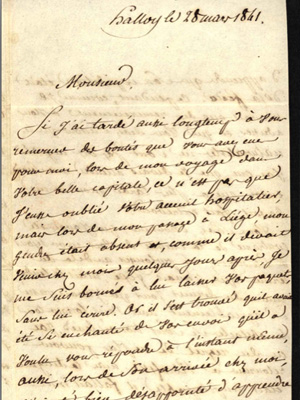 halloy le 28 mars 1841.
Monsieur,
Si j'ai tardé aussi longtemps à vous
remercier des bontés que vous avez eue
pour moi, lors de mon voyage dans
votre belle capitale, ce n'est pas que
j'eusse oublié votre accueil hospitalier,
mais lors de mon passage à Liège mon
gendre était absent et, comme il devait
venir chez moi quelques jours après je
me suis bornés à lui laisser vos paquets
sans lui écrire. Or il s'est trouvé qu'il avait
été si enchanté de vos envoi qu'il a
voulu vous répondre à l'instant même,
aussi, lors de son arrivée chez moi,
bien désappointé d'apprendre